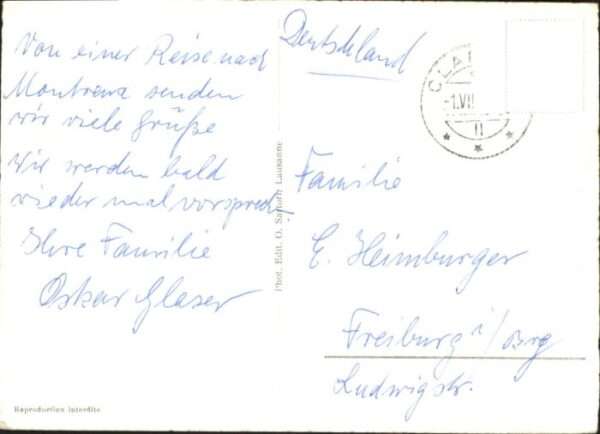 Von einer Reise nach
Montreux senden
wir viele Grüße
Wir werden bald
wieder mal vorsprech!
Ihre Familie
Oskar Glaser
Reproduction interdite
Phot. Edit. O. Sartori Lausanne
Deutschland
CLA
-1.VII
Familie
E. Heimburger
Freiburg i/Brg
Ludwigstr.